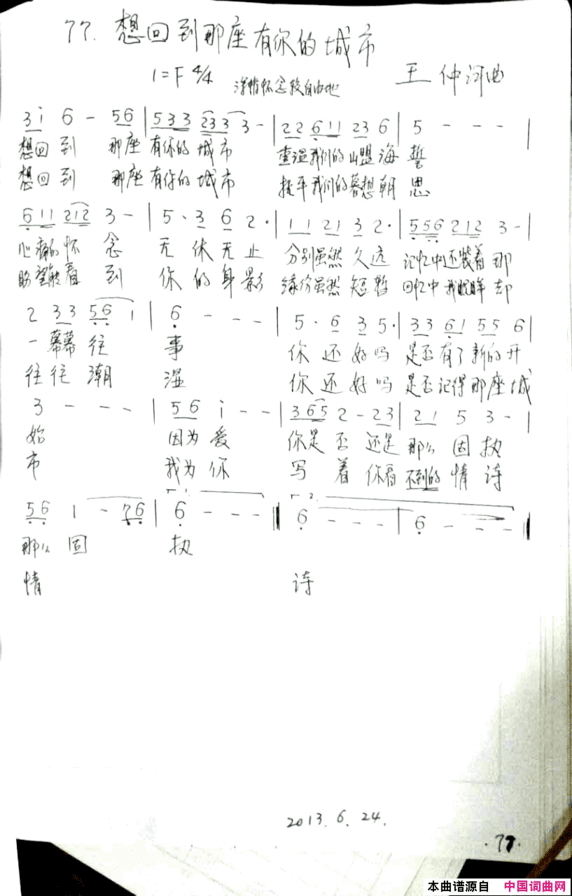 77. 想回到那座有你的城市
1=F 4/4 深情怀念较自由地 王仲河曲
3 i 6 - 5 6 | 5 3 3 2 3 3 3 - | 2 2 6 1 1 2 3 6 | 5 - - - |
想回到 那座有你的城市 我们的山盟海誓
想回到 那座有你的城市 我们的梦想朝思
6 1 1 2 1 2 3 - | 5 · 3 6 2 · | 1 1 2 1 3 2 · | 5 5 6 2 1 2 3 - |
心痛的怀念 无休无止 分别虽然久远 记忆中还装着那
盼望能看到 你的身影 缘份虽然短暂 回忆中我眼眸却
2 3 3 5 6 1 | 6 - - - | 5 · 6 3 5 · | 3 3 6 1 5 5 6 |
一幕幕往事 你还好吗 是否有了新的开
往往潮湿 你还好吗 是否记得那座城
3 - - - | 5 6 i - - | 3 6 5 2 - 2 3 | 2 1 5 3 - |
始 因为爱 你是否还是那么固执
市 我为你 写着你看不到的情诗
5 6 1 - 7 6 | 6 - - - 1. 2. 6 - - - | 6 - - - ‖
那么固执
情 诗
2013.6.24.
·77·
本曲谱源自 中国词曲网